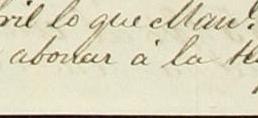 ril lo que Man.
abonar á la te